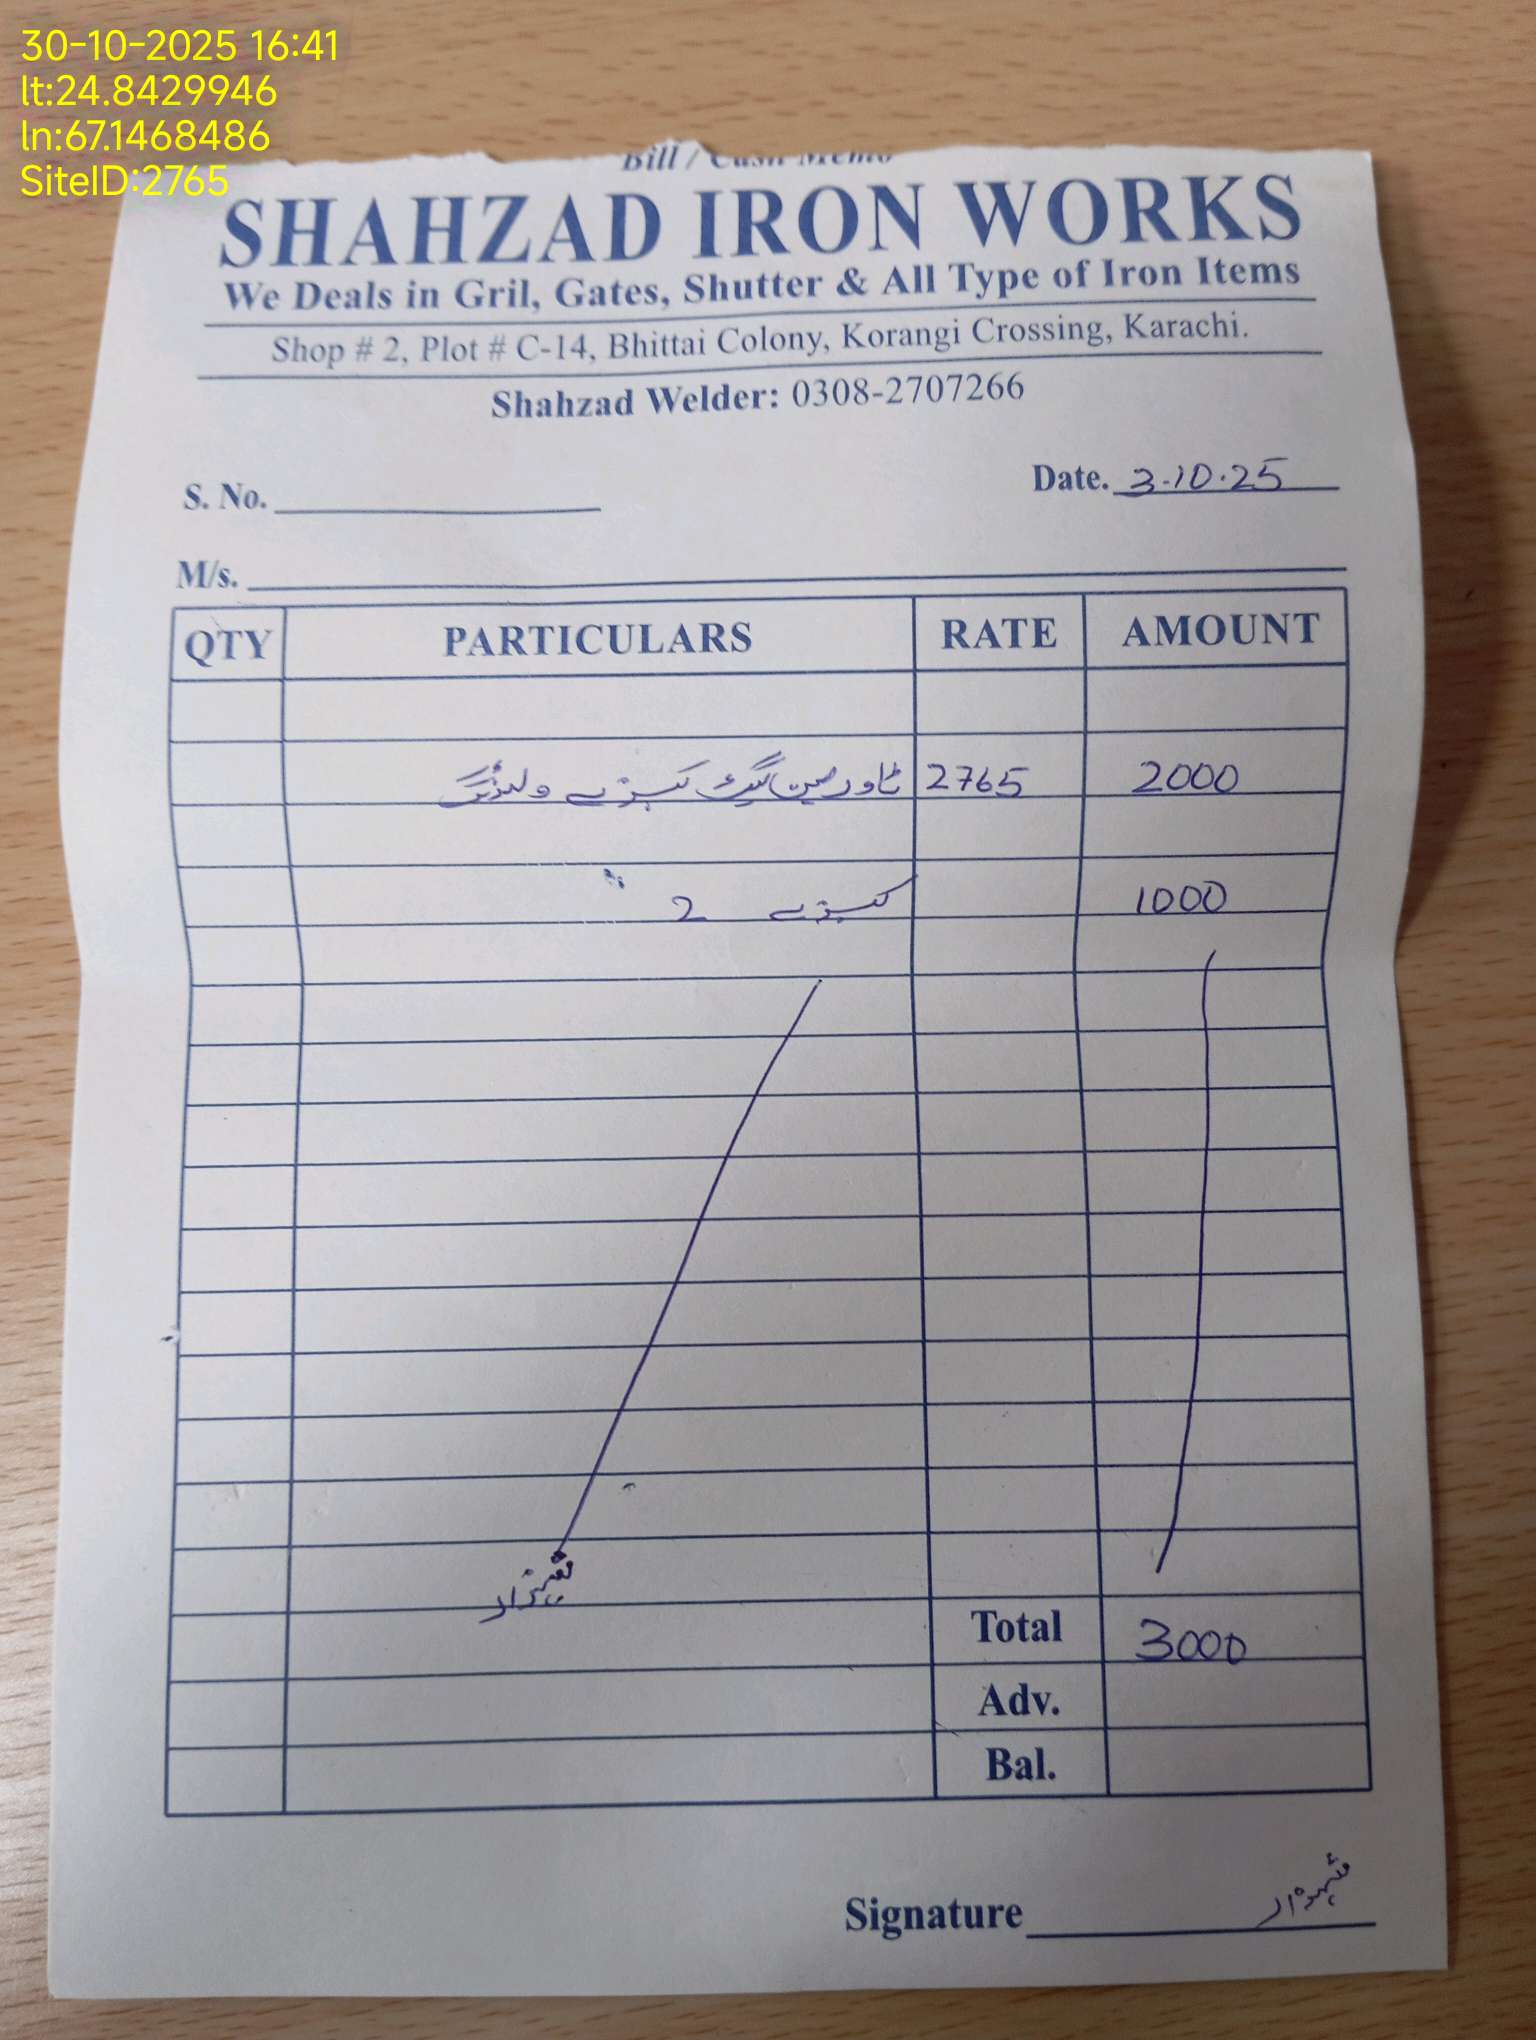 30-10-2025 16:41
lt:24.8429946
ln:67.1468486
SiteID:2765
Bill / Cash Memo
SHAHZAD IRON WORKS
We Deals in Gril, Gates, Shutter & All Type of Iron Items
Shop # 2, Plot # C-14, Bhittai Colony, Korangi Crossing, Karachi.
Shahzad Welder: 0308-2707266
S. No.
Date. 3.10.25
M/s.
QTY PARTICULARS RATE AMOUNT
ٹاور مین گیٹ کبزے ولڈنگ 2765 2000
کبزے 2 1000
شہزاد
Total 3000
Adv.
Bal.
Signature شہزاد